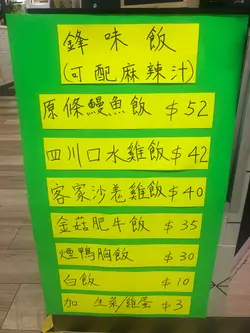 鋒味飯
(可配麻辣汁)
原條鰻魚飯 $52
四川口水雞飯 $42
客家沙卷雞飯 $40
金菇肥牛飯 $35
煙鴨胸飯 $30
白飯 $10
加 生菜/雞蛋 $3